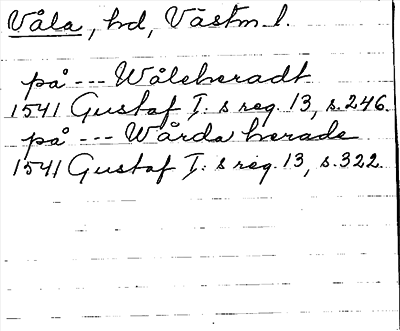 Våla, hd, Västm l.
på --- Wåleheradt
1541 Gustaf I: s reg. 13, s. 246.
på --- Wårda herade
1541 Gustaf I: s reg. 13, s. 322.